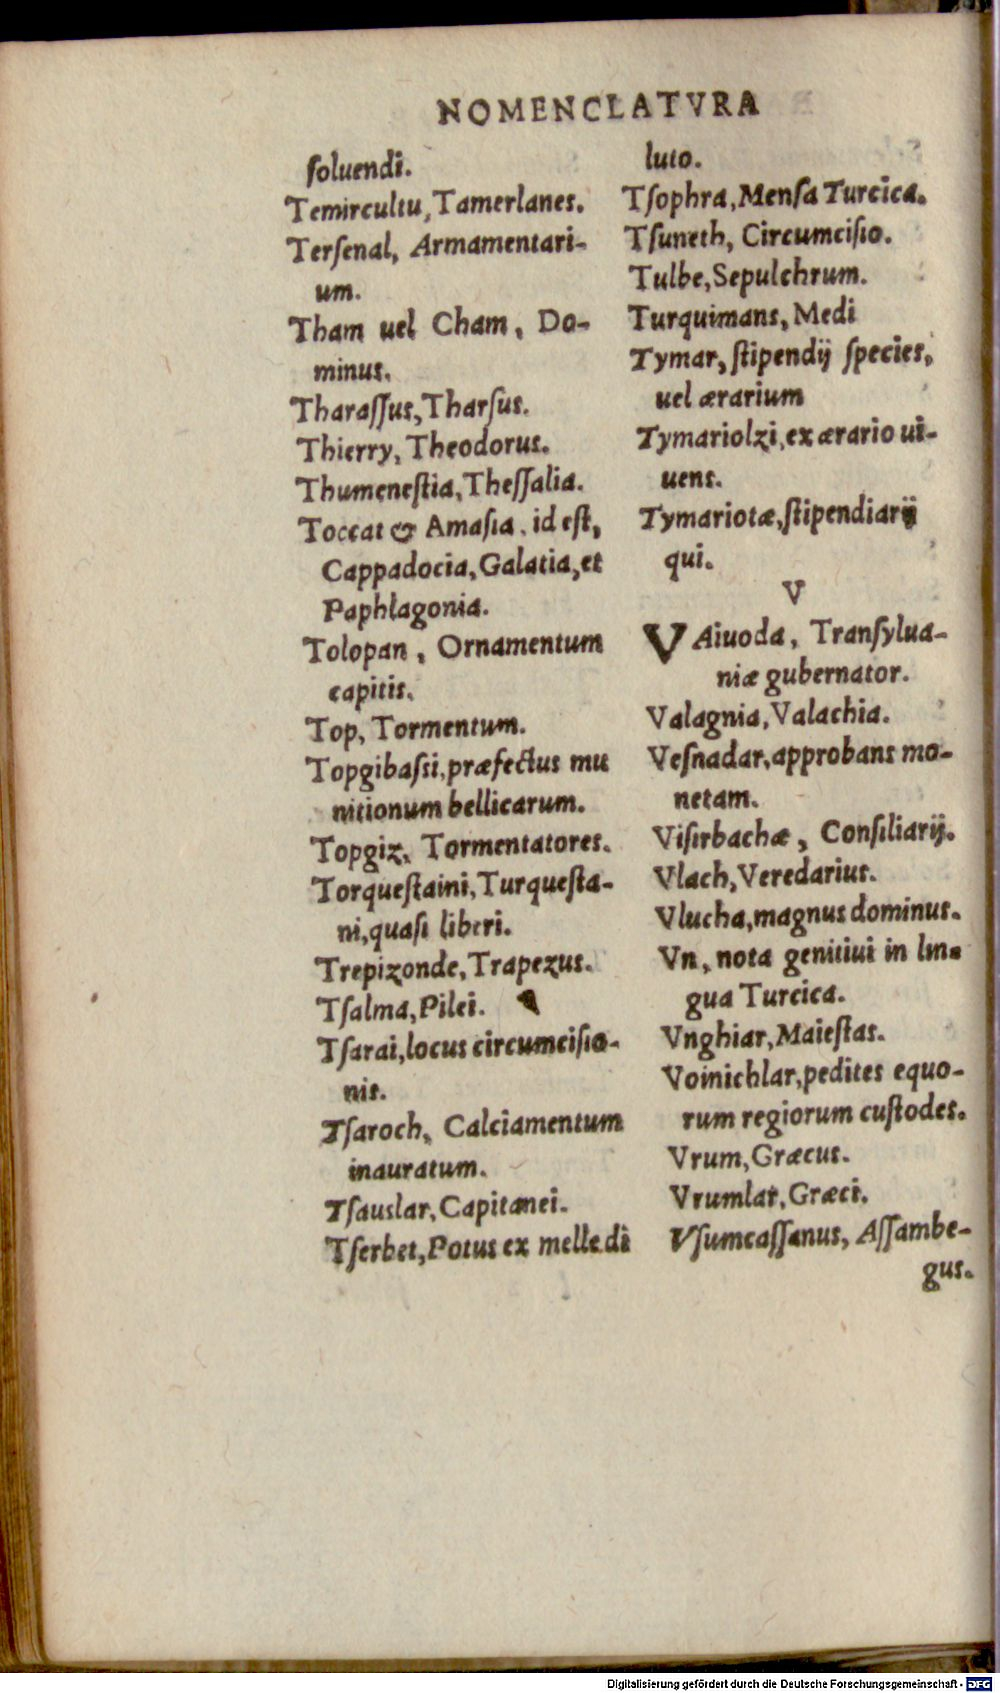 NOMENCLATVRA
ſoluendi.
Temircultu, Tamerlanes.
Terſenal, Armamentari-
um.
Tham uel Cham, Do-
minus.
Tharaſſus, Tharſus.
Thierry, Theodorus.
Thumeneſtia, Theſſalia.
Toccat & Amaſia, id eſt,
Cappadocia, Galatia, et
Paphlagonia.
Tolopan, Ornamentum
capitis.
Top, Tormentum.
Topgibaſsi, præfectus mu
nitionum bellicarum.
Topgiz, Tormentatores.
Torqueſtaini, Turqueſta-
ni, quaſi liberi.
Trepizonde, Trapezus.
Tſalma, Pilei.
Tſarai, locus circumciſio-
nis.
Tſaroch, Calciamentum
inauratum.
Tſauslar, Capitanei.
Tſerbet, Potus ex melle di
luto.
Tſophra, Menſa Turcica.
Tſuneth, Circumciſio.
Tulbe, Sepulchrum.
Turquimans, Medi
Tymar, ſtipendij ſpecies,
uel ærarium
Tymariolzi, ex ærario ui-
uens.
Tymariotæ, ſtipendiarij
qui.
V
VAiuoda, Tranſylua-
niæ gubernator.
Valagnia, Valachia.
Veſnadar, approbans mo-
netam.
Viſirbachæ, Conſiliarij.
Vlach, Veredarius.
Vlucha, magnus dominus.
Vn, nota genitiui in lin-
gua Turcica.
Vnghiar, Maieſtas.
Voinichlar, pedites equo-
rum regiorum cuſtodes.
Vrum, Græcus.
Vrumlar, Græci.
Vſumcaſſanus, Aſſambe-
gus.
Digitalisierung gefördert durch die Deutsche Forschungsgemeinschaft - DFG